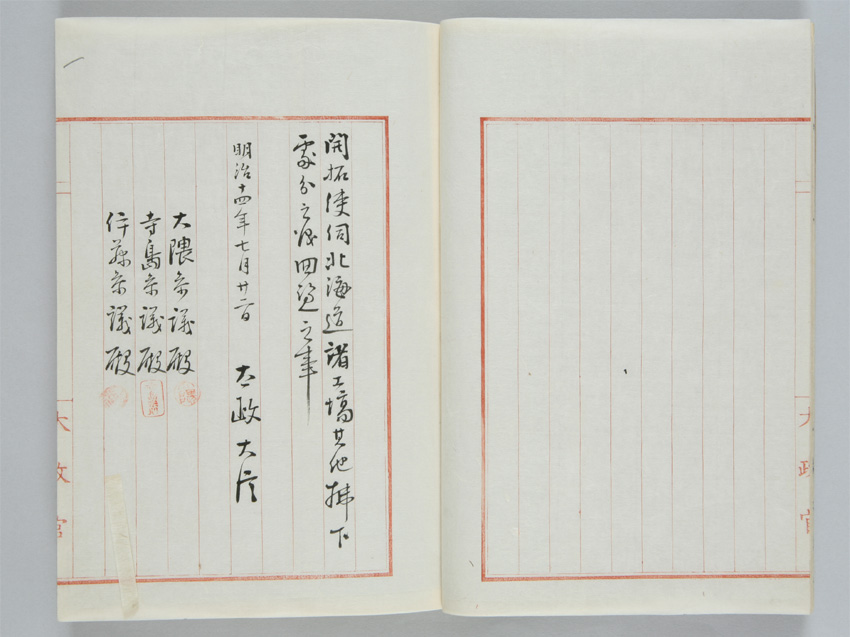 開拓使伺北海道諸工場其他拂下
處分之議回議之事
明治十四年七月廿一日
太政大臣
大隈参議殿
寺島参議殿
伊藤参議殿
太政官
太政官